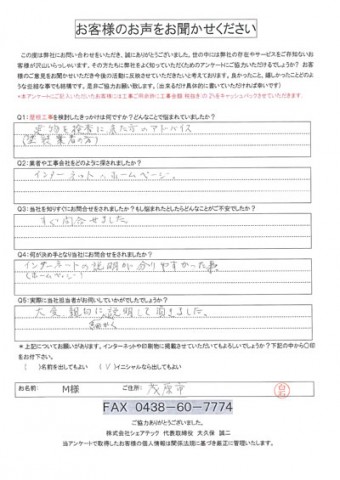 お客様のお声をお聞かせください
この度は弊社にお問い合わせをいただき、誠にありがとうございました。世の中には弊社の存在やサービスをご存知ないお
客様が沢山いらっしゃいます。その方たちに弊社をよく知っていただくためのアンケートにご協力いただけるでしょうか？ お客
様のご意見をお聞かせいただき今後の活動に反映させていただきたいと考えております。良かったこと、嬉しかったことどのよう
な些細な事でも結構です。是非ご協力お願い致します。（出来るだけ具体的に書いていただければ幸いです）
Q1：屋根工事を検討したきっかけは何ですか？どんなことで悩まれていましたか？
建物を検査に来た方のアドバイス
Q2：業者や工事会社をどのように探されましたか？
インターネット、ホームページ。
Q3：当社を知りすぐにお問合せをされましたか？もし悩まれたとしたらどんなことがご不安でしたか？
すぐ問合せました。
Q4：何が決め手となり当社にお問合せをされましたか？
インターネットの説明が分りやすかった事。
(ホームページ)
Q5：実際に当社担当者がお伺いしていかがでしたでしょうか？
大変、親切に説明して頂きました。
細かく
＊上記についてお願いがあります。インターネットや印刷物に掲載させていただいてもよろしいでしょうか？下記の中から〇印
をお付下さい。
（ ）名前を出してもよい （ ✓ ）イニシャルなら出してもよい
お名前: M様 ご住所: 茂原市
FAX 0438-60-7774
ご協力ありがとうございました。
株式会社シェアテック 代表取締役 大久保 誠二
当アンケートで取得したお客様の個人情報は関係法規に基づき厳正に管理いたします。